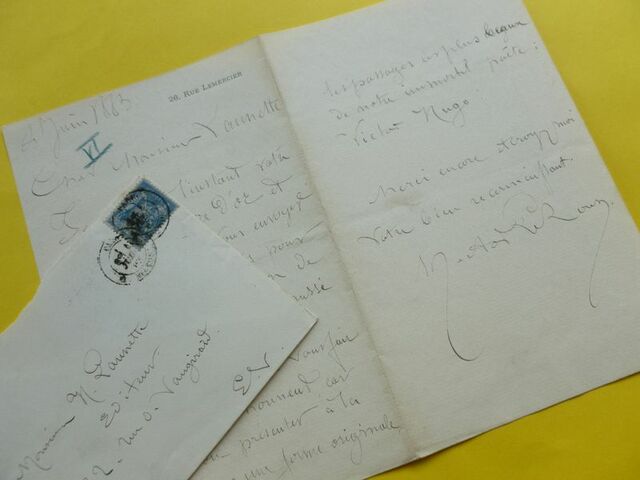 26, RUE LEMERCIER
4 Juin 1883
VI
Cher Monsieur Launette
l'instant votre
d'or et
envoyé
pour
de
Vous fair
car
présenter à la
une forme originale,
les passages les plus beaux
de notre immortel poète :
Victor Hugo.
Merci encore et croyez moi
Votre bien reconnaissant.
Hector Le Roux
Monsieur H Launette
Editeur
rue de Vaugirard
E.V.